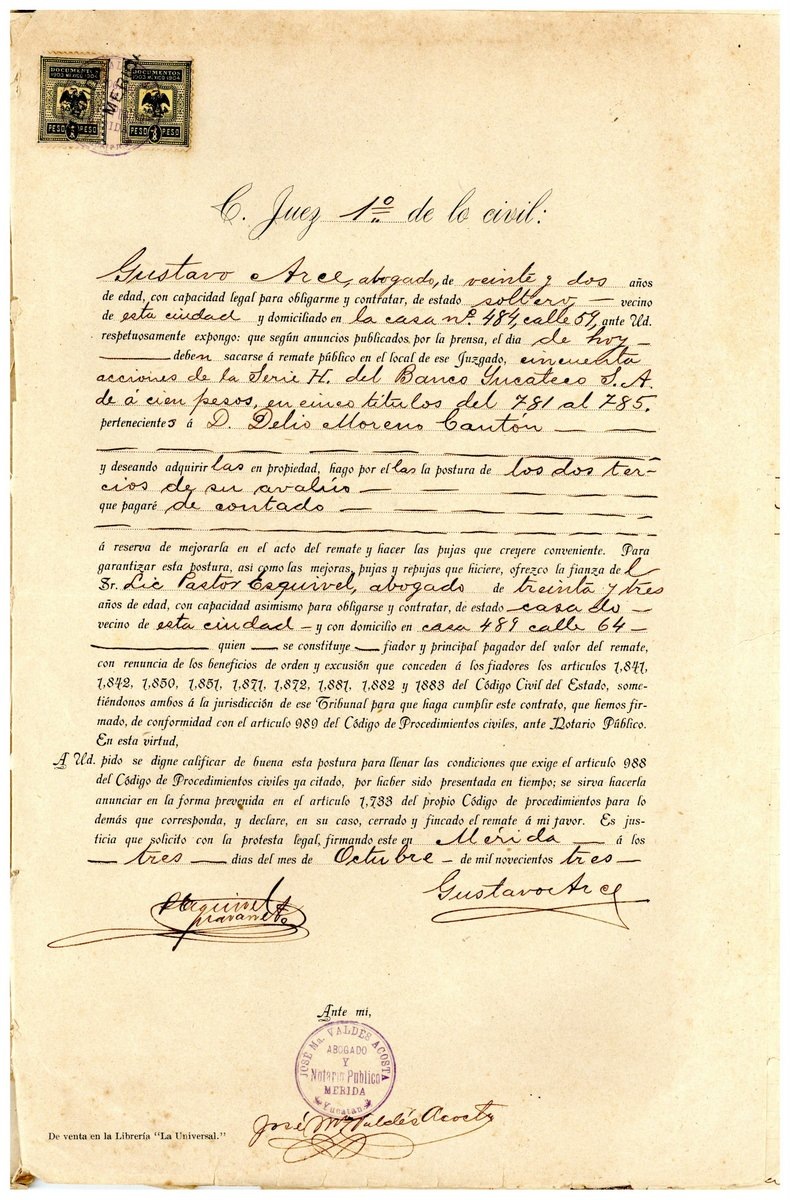 DOCUMENTOS DOCUMENTOS
1903 MEXICO 1904 1903 MEXICO 1904
MERID
PESO PESO PESO PESO
C. Juez 1º de lo civil:
Gustavo Arce, abogado, de veinte y dos años
de edad, con capacidad legal para obligarme y contratar, de estado soltero — vecino
de esta ciudad y domiciliado en la casa nº 484, calle 59, ante Ud.
respetuosamente expongo: que según anuncios publicados por la prensa, el dia de hoy —
— deben sacarse á remate público en el local de ese Juzgado, cincuenta
acciones de la Serie H. del Banco Yucateco S. A.
de á cien pesos, en cinco titulos del 781 al 785.
pertenecientes á D. Delio Moreno Canton — —
y deseando adquirir las en propiedad, hago por ellas la postura de los dos ter-
cios de su avalúo —
que pagaré de contado —
á reserva de mejorarla en el acto del remate y hacer las pujas que creyere conveniente. Para
garantizar esta postura, asi como las mejoras, pujas y repujas que hiciere, ofrezco la fianza del
Sr. Lic Pastor Esquivel, abogado de treinta y tres
años de edad, con capacidad asimismo para obligarse y contratar, de estado casado —
vecino de esta ciudad — y con domicilio en casa 489 calle 64 —
— quien — se constituye — fiador y principal pagador del valor del remate,
con renuncia de los beneficios de orden y excusión que conceden á los fiadores los articulos 1,841,
1,842, 1,850, 1,851, 1,871, 1,872, 1,881, 1,882 y 1883 del Código Civil del Estado, some-
tiéndonos ambos á la jurisdicción de ese Tribunal para que haga cumplir este contrato, que hemos fir-
mado, de conformidad con el articulo 989 del Código de Procedimientos civiles, ante Notario Público.
En esta virtud,
A Ud. pido se digne calificar de buena esta postura para llenar las condiciones que exige el articulo 988
del Código de Procedimientos civiles ya citado, por haber sido presentada en tiempo; se sirva hacerla
anunciar en la forma prevenida en el articulo 1,733 del propio Código de procedimientos para lo
demás que corresponda, y declare, en su caso, cerrado y fincado el remate á mi favor. Es jus-
ticia que solicito con la protesta legal, firmando este en Mérida — á los
— tres — dias del mes de Octubre — de mil novecientos tres —
PEsquivel Gustavo Arce
Ante mi,
JOSÉ Ma. VALDÉS ACOSTA
ABOGADO
Y
Notario Público
MERIDA
Yucatan
José Mª Valdés Acosta
De venta en la Librería "La Universal."